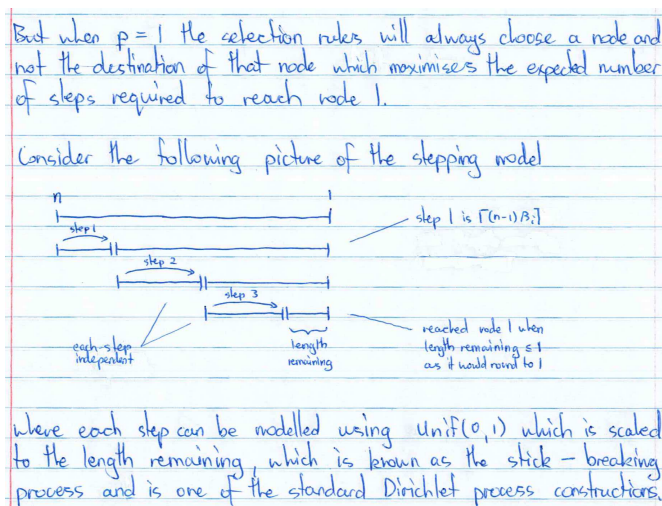 But when p = 1 the selection rules will always choose a node and
not the destination of that node which maximises the expected number
of steps required to reach node 1.
Consider the following picture of the stepping model
n 1
step 1 is ⌈(n-1)βᵢ⌉
step 1
step 2
step 3
each step
independent
length
remaining
reached node 1 when
length remaining ≤ 1
as it would round to 1
where each step can be modelled using Unif(0,1) which is scaled
to the length remaining, which is known as the stick-breaking
process and is one of the standard Dirichlet process constructions.